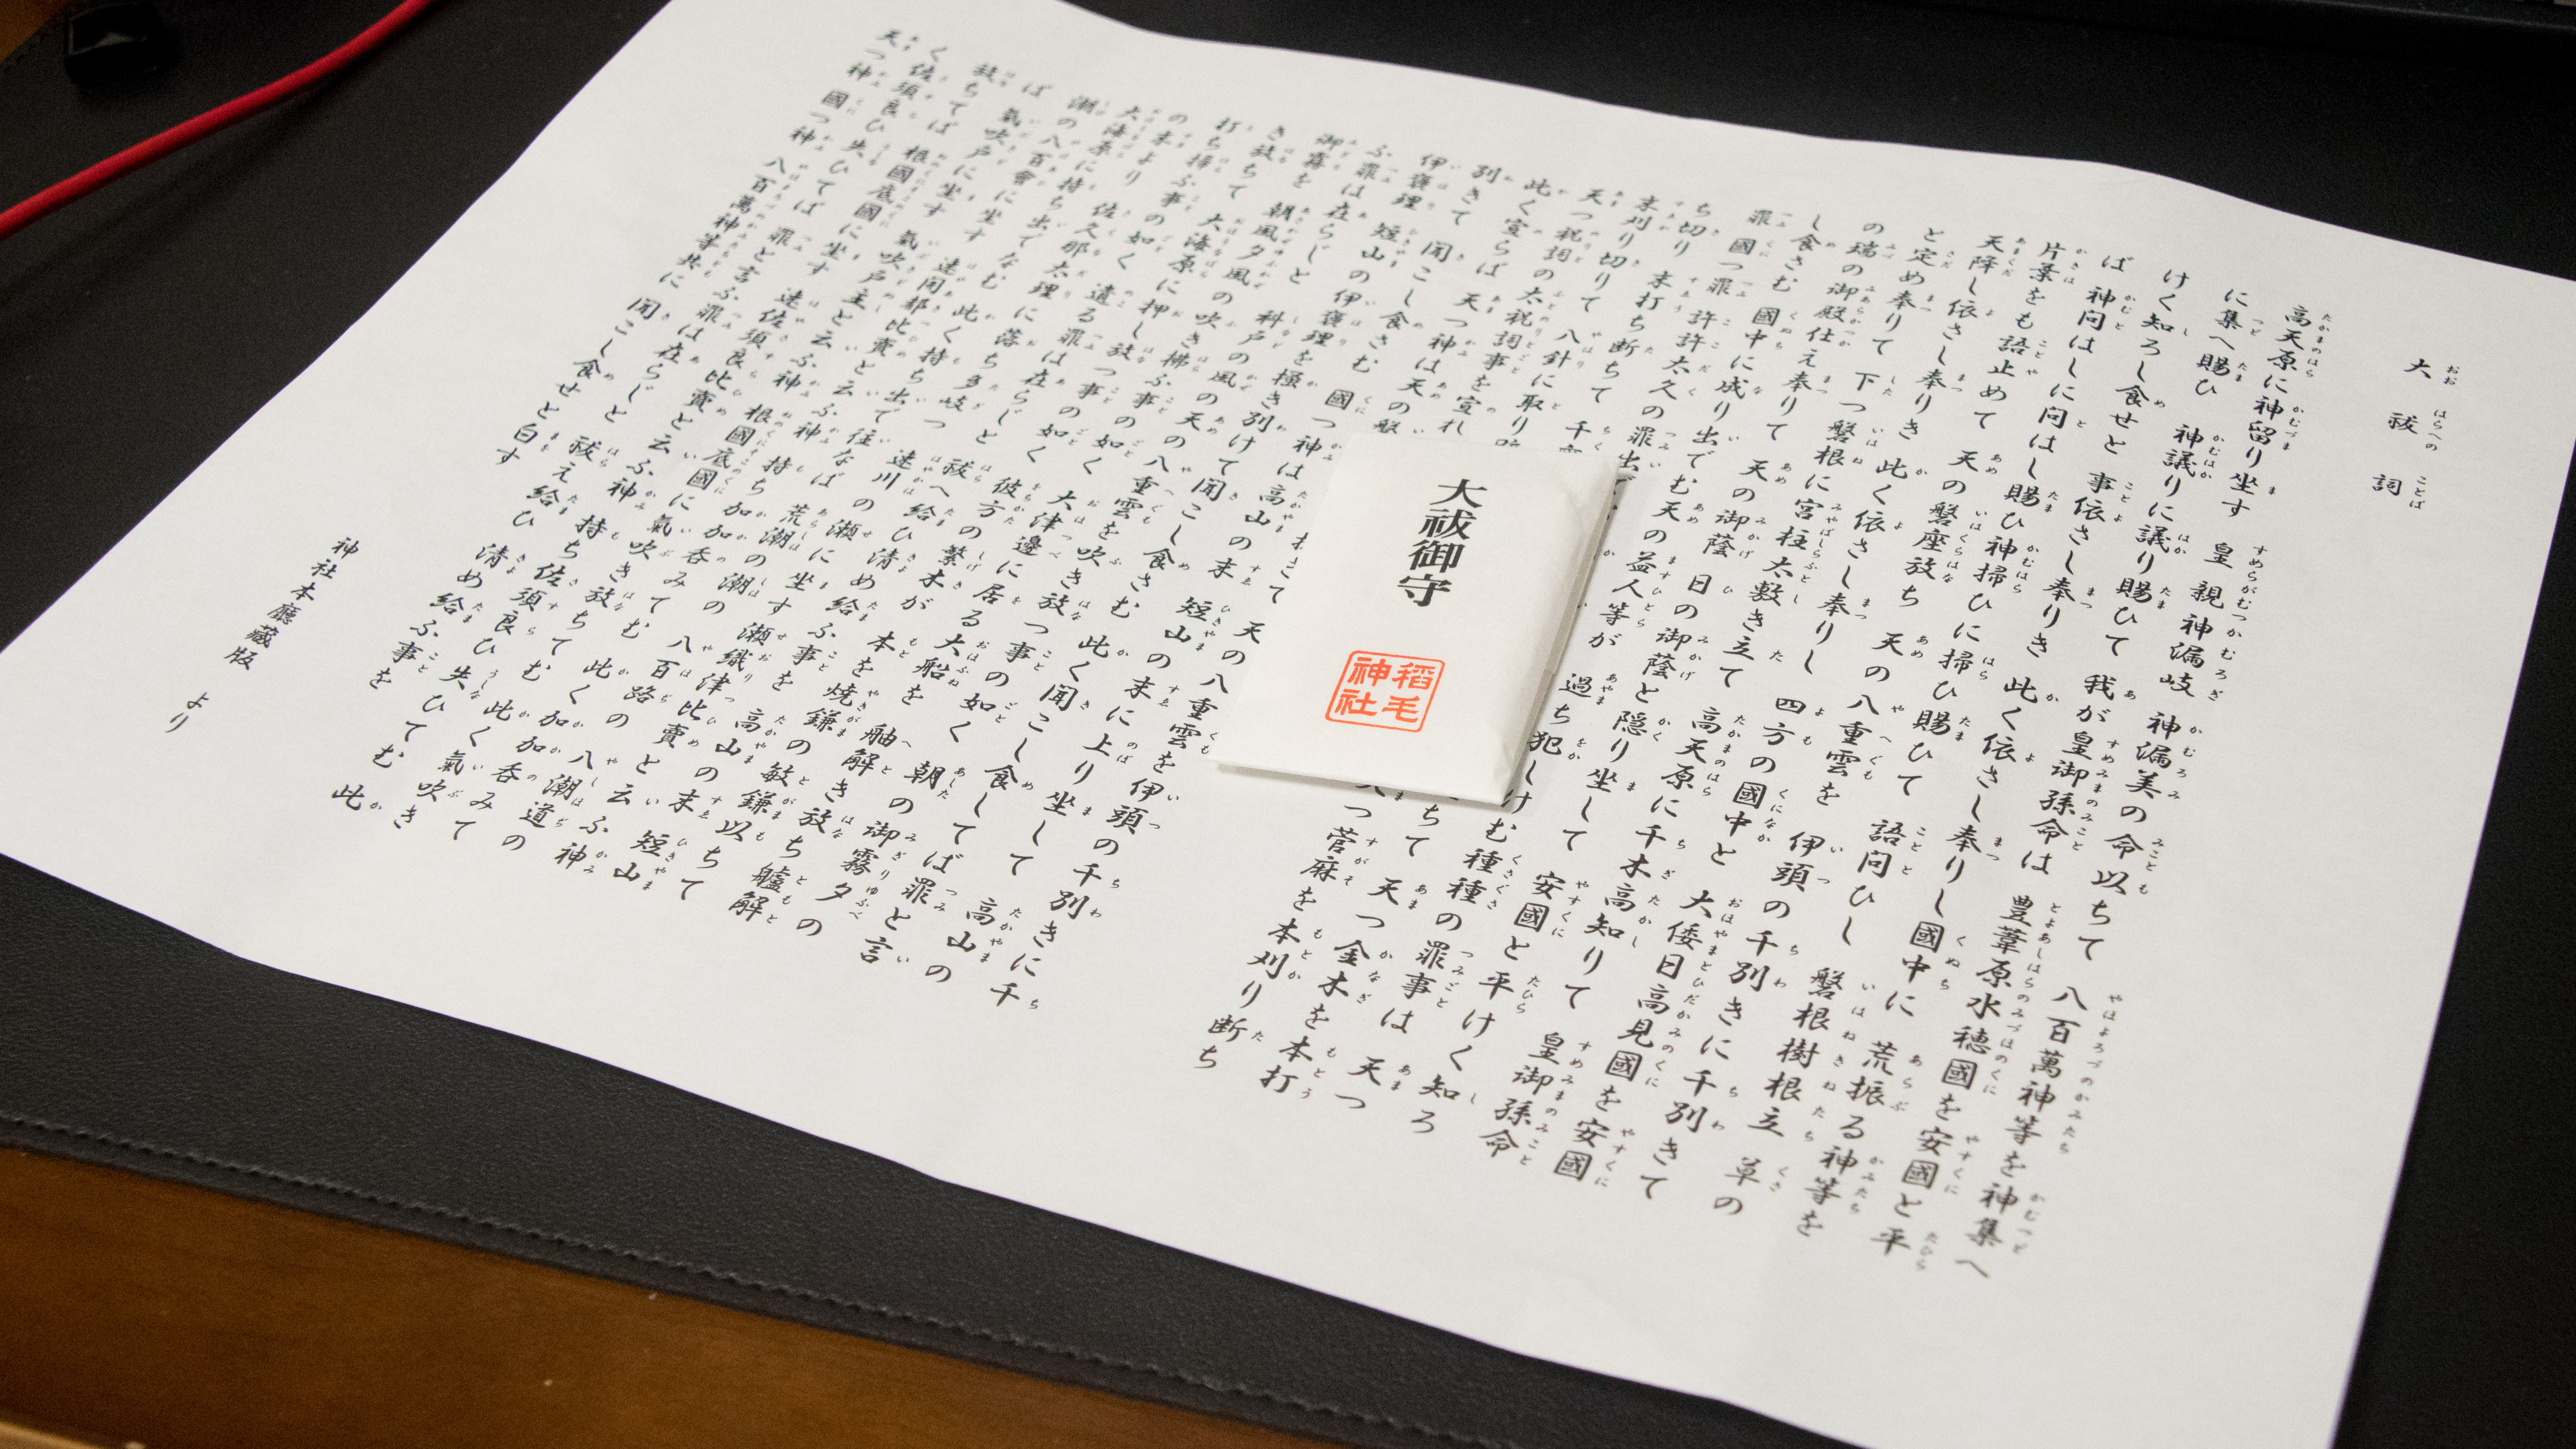 大祓詞
高天原に神留り坐す 皇親神漏岐 神漏美の命以ちて 八百萬神等を神集へ
に集へ賜ひ 神議りに議り賜ひて 我が皇御孫命は 豊葦原水穂國を安國と平
けく知ろし食せと 事依さし奉りき 此く依さし奉りし國中に 荒振る神等を
ば 神問はしに問はし賜ひ神掃ひに掃ひ賜ひて 語問ひし 磐根樹根立 草の
片葉をも語止めて 天の磐座放ち 天の八重雲を 伊頭の千別きに千別きて
天降し依さし奉りき 此く依さし奉りし 四方の國中と 大倭日高見國を安國
と定め奉りて 下つ磐根に宮柱太敷き立て 高天原に千木高知りて 皇御孫命
の瑞の御殿仕え奉りて 天の御蔭 日の御蔭と隠り坐して 安國と平けく知ろ
し食さむ 國中に成り出でむ天の益人等が 過ち犯しけむ種種の罪事は 天つ
罪 國つ罪 許許太久の罪出で ちて 天つ金木を本打
ち切り 末打ち断ちて 千 つ菅麻を本刈り断ち
末刈り切りて 八針に取り
天つ祝詞の太祝詞事を宣れ
此く宣らば 天つ神は天の磐 きて 天の八重雲を伊頭の千別きに千
別きて 聞こし食さむ 國つ神は高山の末 短山の末に上り坐して 高山の
伊褒理 短山の伊褒理を掻き別けて聞こし食さむ 此く聞こし食してば罪と言
ふ罪は在らじと 科戸の風の天の八重雲を吹き放つ事の如く 朝の御霧夕の
御霧を 朝風夕風の吹き拂ふ事の如く 大津邊に居る大船を 舳解き放ち艫解
き放ちて 大海原に押し放つ事の如く 彼方の繁木が本を 焼鎌の敏鎌以ちて
打ち掃ふ事の如く 遺る罪は在らじと 祓へ給ひ清め給ふ事を 高山の末 短山
の末より 佐久那太理に落ち多岐つ 速川の瀬に坐す瀬織津比賣と云ふ神
大海原に持ち出でなむ 此く持ち出で往なば 荒潮の潮の八百路の八潮道の
潮の八百會に坐す 速開都比賣と云ふ神 持ち加加呑みてむ 此く加加呑みて
ば 氣吹戸に坐す 氣吹戸主と云ふ神 根國底國に氣吹き放ちてむ 此く氣吹き
放ちてば 根國底國に坐す 速佐須良比賣と云ふ神 持ち佐須良ひ失ひてむ 此
く佐須良ひ失ひてば 罪と言ふ罪は在らじと 祓え給ひ 清め給ふ事を
天つ神 國つ神 八百萬神等共に 聞こし食せと白す
神社本廳蔵版 より
大祓御守
稲毛
神社